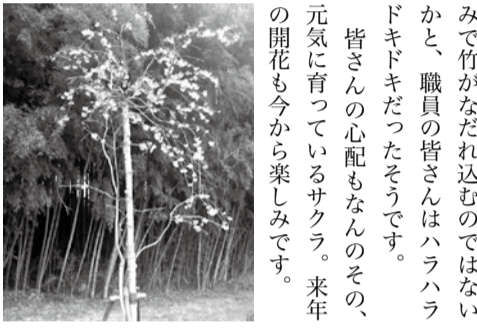 みで竹がなだれ込むのではない
かと、職員の皆さんはハラハラ
ドキドキだったそうです。
皆さんの心配もなんのその、
元気に育っているサクラ。来年
の開花も今から楽しみです。